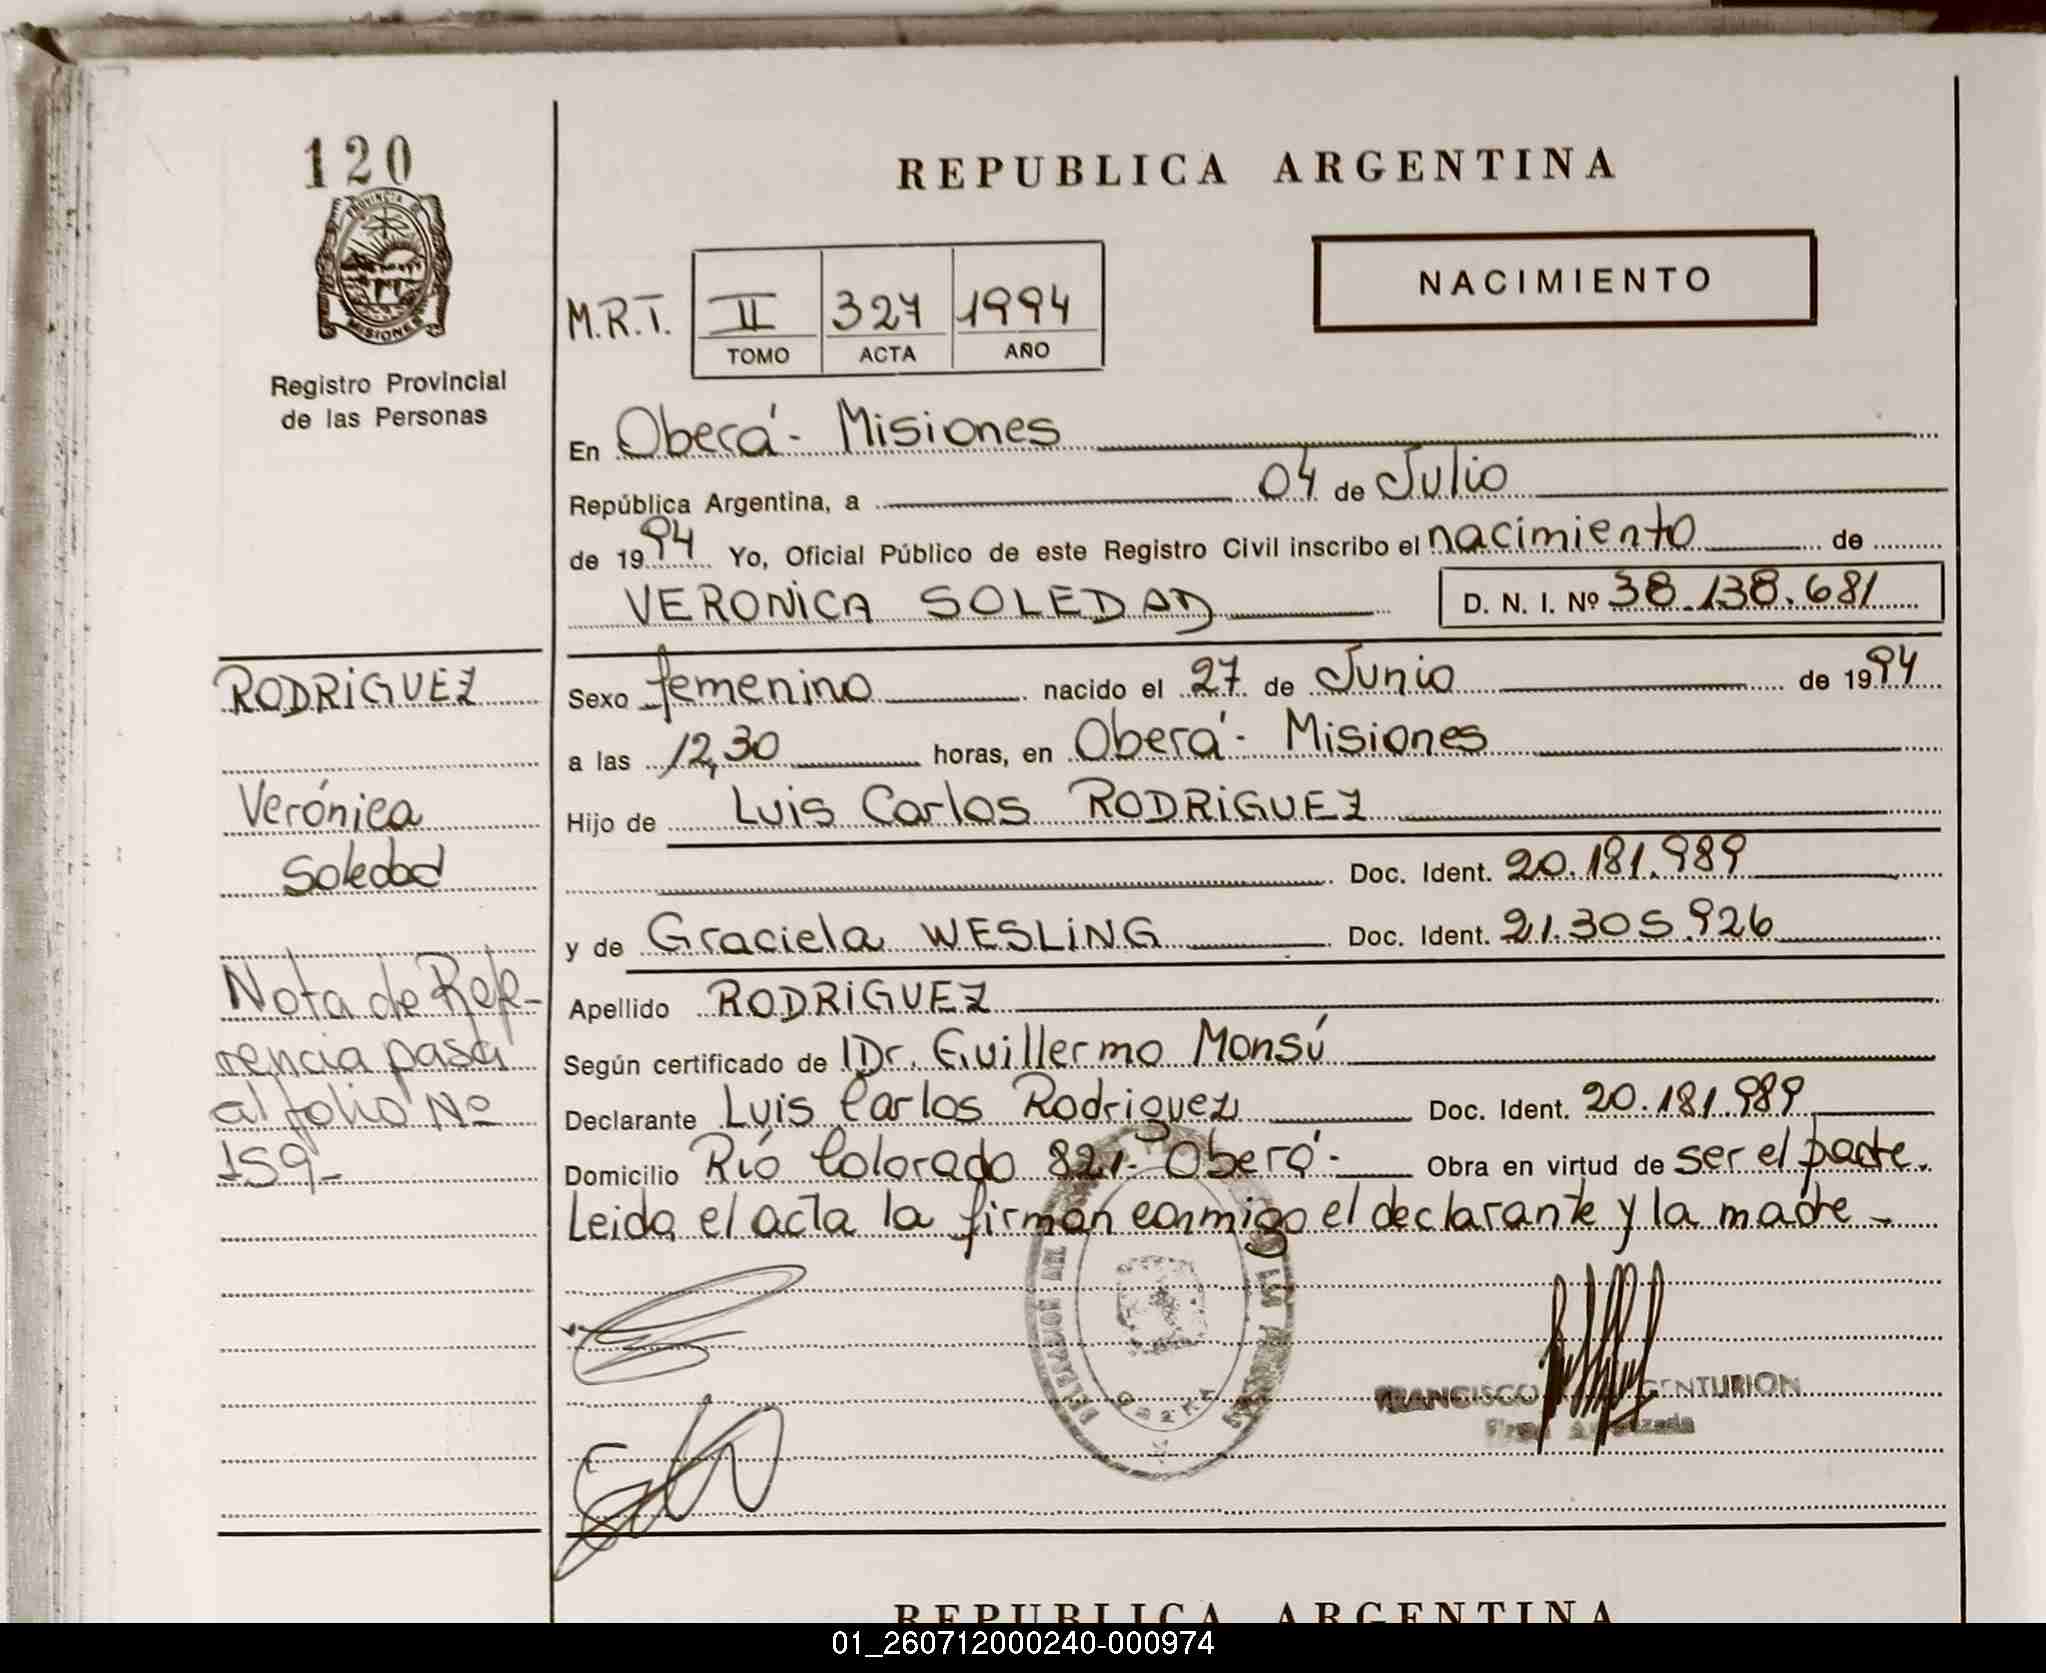 120
PROVINCIA DE
MISIONES
Registro Provincial
de las Personas
REPUBLICA ARGENTINA
NACIMIENTO
M.R.T. II 327 1994
TOMO ACTA AÑO
En Oberá - Misiones
República Argentina, a 04 de Julio
de 1994 Yo, Oficial Público de este Registro Civil inscribo el nacimiento de
VERONICA SOLEDAD D. N. I. Nº 38.138.681
RODRIGUEZ
Verónica
Soledad
Nota de Refe-
rencia pasa
al folio Nº
159-
Sexo femenino nacido el 27 de Junio de 1994
a las 12,30 horas, en Oberá - Misiones
Hijo de Luis Carlos RODRIGUEZ
Doc. Ident. 20.181.989
y de Graciela WESLING Doc. Ident. 21.305.926
Apellido RODRIGUEZ
Según certificado de Dr. Guillermo Monsú
Declarante Luis Carlos Rodriguez Doc. Ident. 20.181.989
Domicilio Río Colorado 821- Oberá - Obra en virtud de ser el padre.
Leida el acta la firman conmigo el declarante y la madre -
FRANCISCO CENTURION
Firma Autorizada
REPUBLICA ARGENTINA
01_260712000240-000974